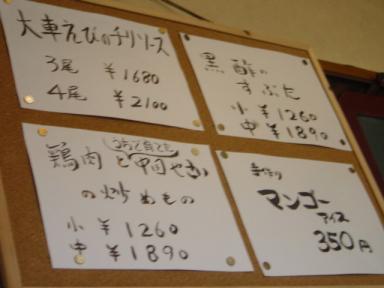 大車えびのチリソース
3尾 ¥1680
4尾 ¥2100
黒酢の
すぶた
小 ¥1260
中 ¥1890
鶏肉と中国やさい
の炒めもの
小 ¥1260
中 ¥1890
手作り
マンゴー
アイス
350円